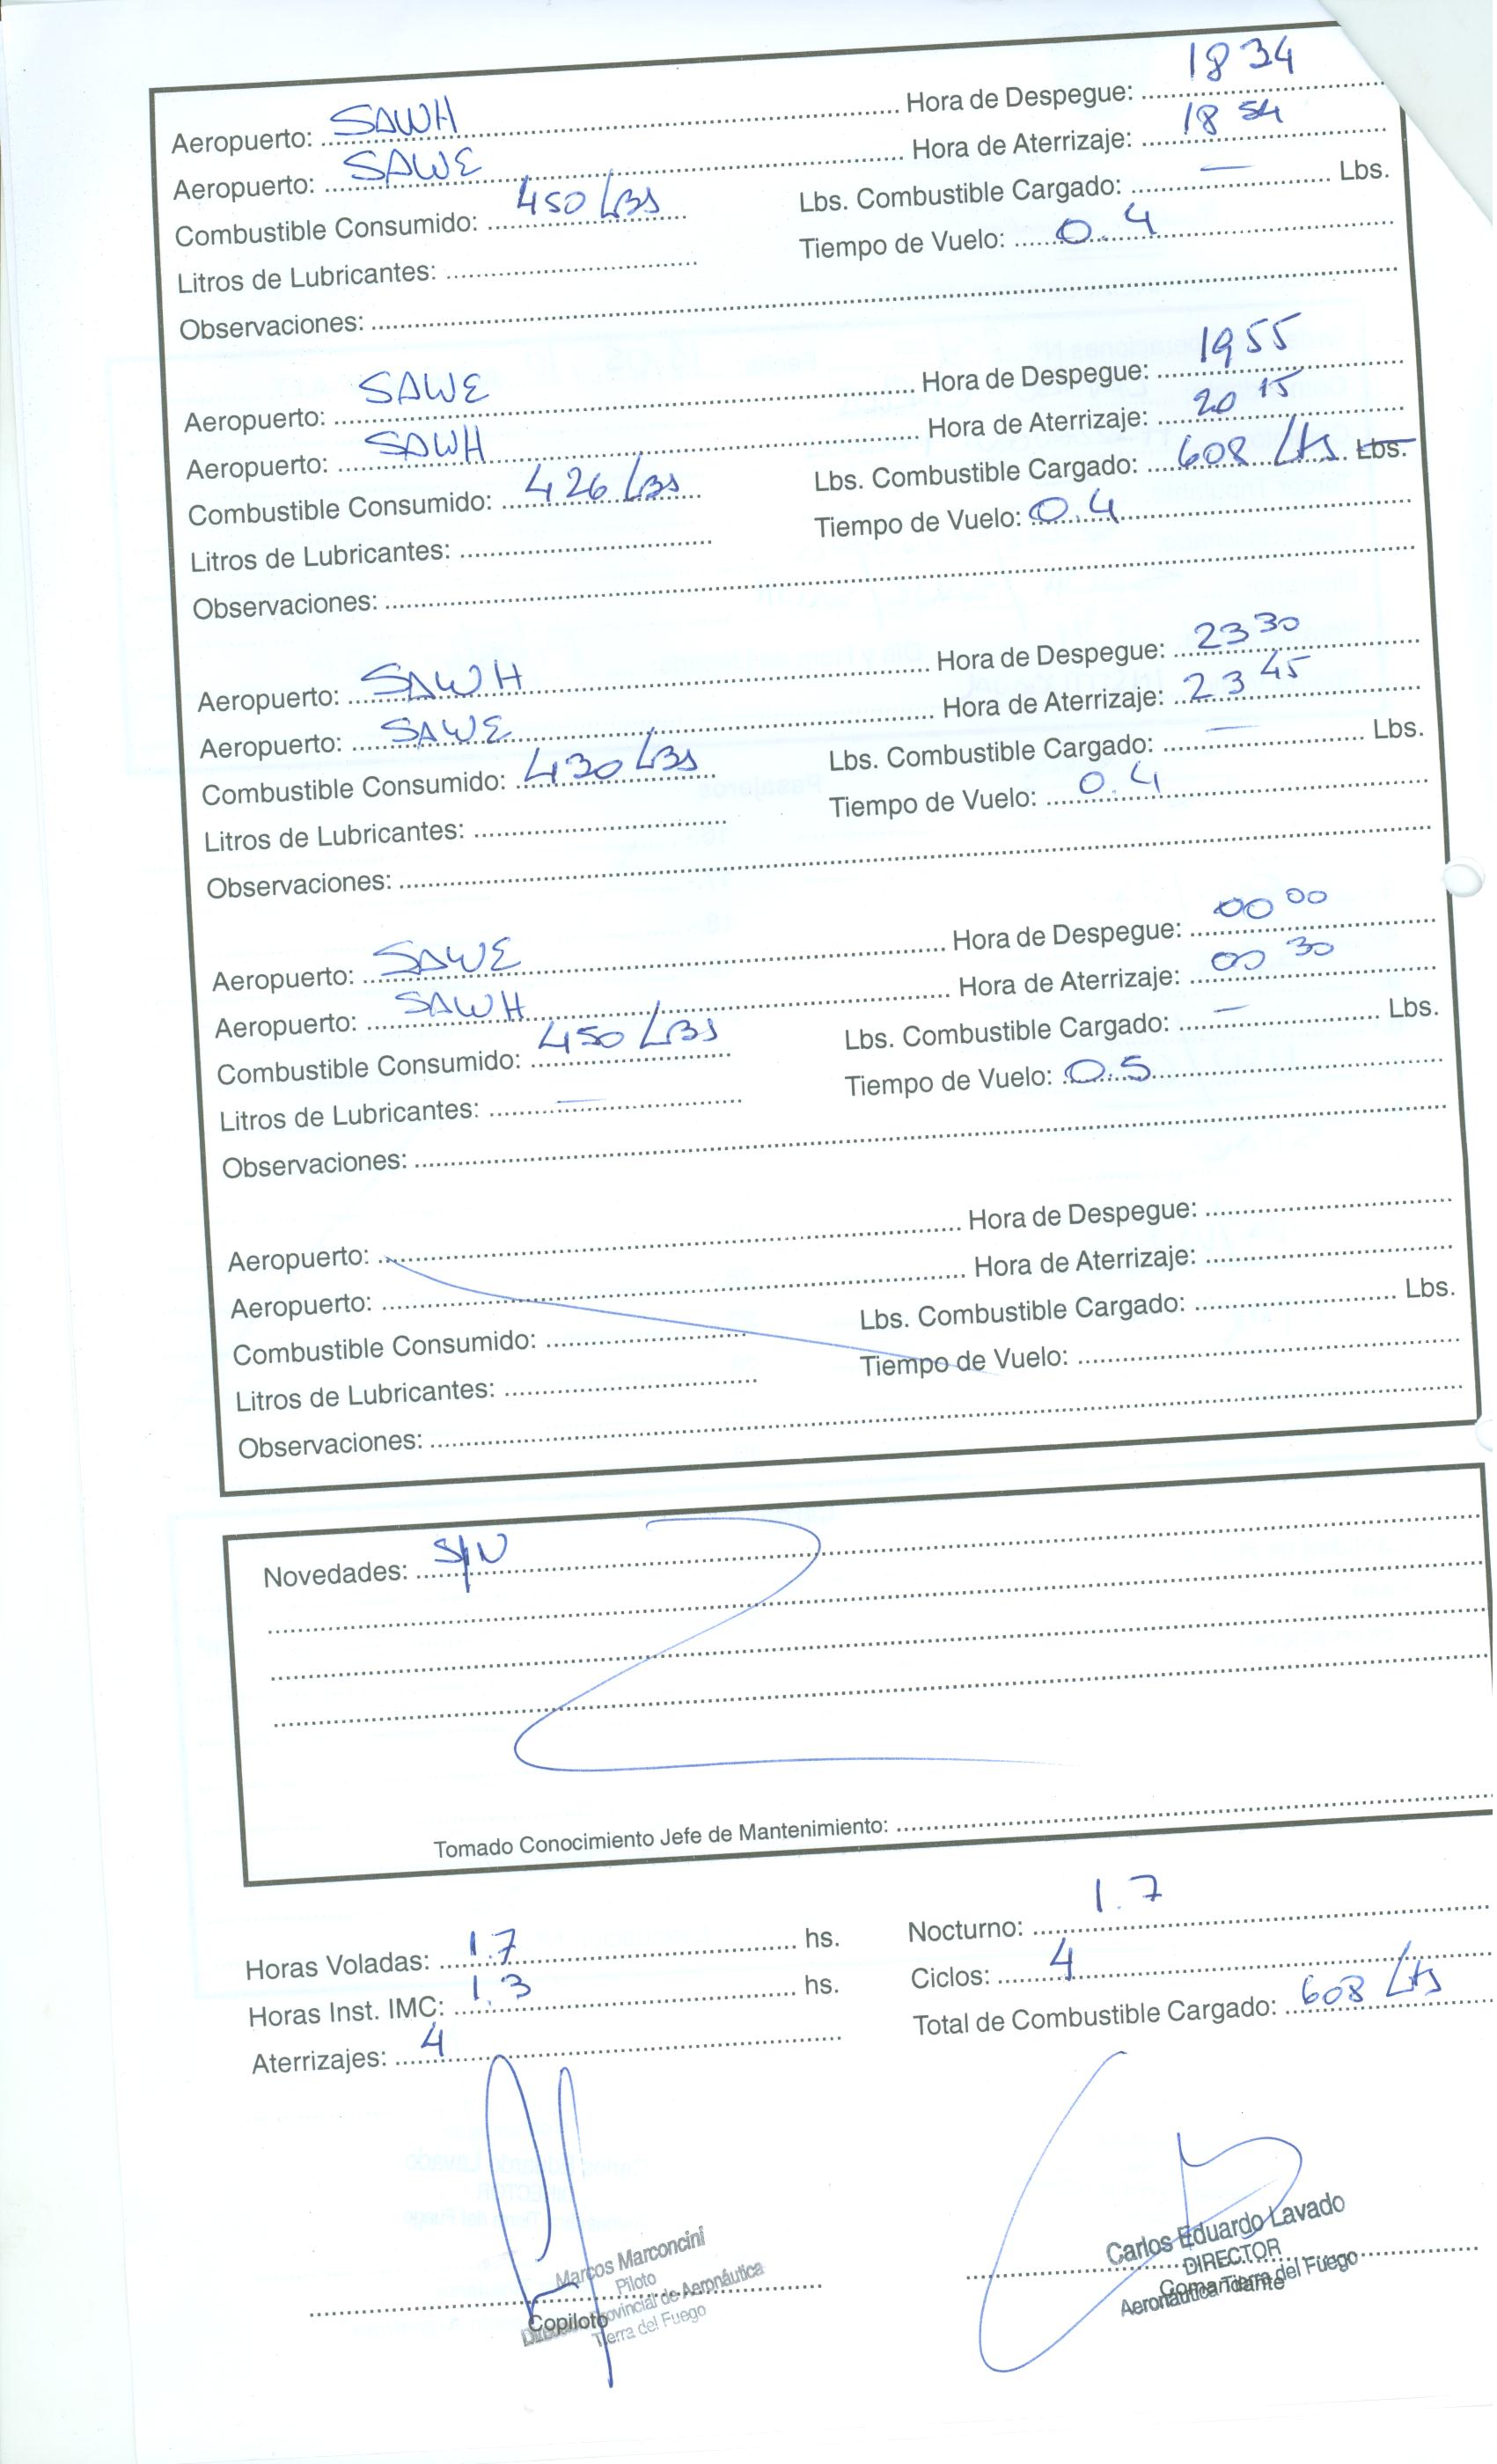 Aeropuerto: SAWH Hora de Despegue: 18 34
Aeropuerto: SAWE Hora de Aterrizaje: 18 54
Combustible Consumido: 450 Lbs Lbs. Combustible Cargado: — Lbs.
Litros de Lubricantes: Tiempo de Vuelo: 0.4
Observaciones:
Aeropuerto: SAWE Hora de Despegue: 1955
Aeropuerto: SAWH Hora de Aterrizaje: 20 15
Combustible Consumido: 426 Lbs Lbs. Combustible Cargado: 608 Lts Lbs.
Litros de Lubricantes: Tiempo de Vuelo: 0.4
Observaciones:
Aeropuerto: SAWH Hora de Despegue: 23 30
Aeropuerto: SAWE Hora de Aterrizaje: 23 45
Combustible Consumido: 430 Lbs Lbs. Combustible Cargado: — Lbs.
Litros de Lubricantes: Tiempo de Vuelo: 0.4
Observaciones:
Aeropuerto: SAWE Hora de Despegue: 00 00
Aeropuerto: SAWH Hora de Aterrizaje: 00 30
Combustible Consumido: 450 Lbs Lbs. Combustible Cargado: — Lbs.
Litros de Lubricantes: — Tiempo de Vuelo: 0.5
Observaciones:
Aeropuerto: Hora de Despegue:
Aeropuerto: Hora de Aterrizaje:
Combustible Consumido: Lbs. Combustible Cargado: Lbs.
Litros de Lubricantes: Tiempo de Vuelo:
Observaciones:
Novedades: S/N
Tomado Conocimiento Jefe de Mantenimiento:
Horas Voladas: 1.7 hs. Nocturno: 1.7
Horas Inst. IMC: 1.3 hs. Ciclos: 4
Aterrizajes: 4 Total de Combustible Cargado: 608 Lts
Marcos Marconcini
Piloto
Copiloto
Provincial de Aeronáutica
Tierra del Fuego
Carlos Eduardo Lavado
DIRECTOR
Comandante
Aeronáutica Tierra del Fuego